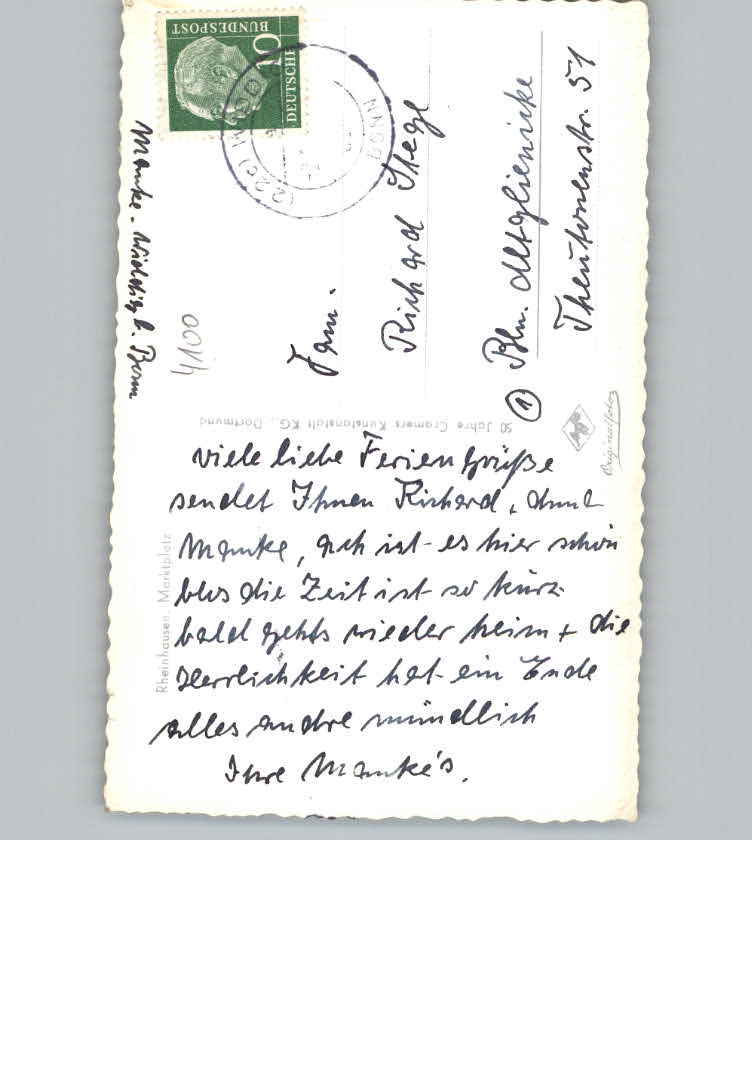 viele liebe Feriengrüße
sendet Ihnen Richard, Anna
Manke, ach ist es hier schön
blos die Zeit ist so kurz
bald gehts wieder heim + die
Herrlichkeit hat ein Ende
alles andre mündlich
Ihre Manke's.
Rheinhausen, Marktplatz
50 Jahre Cramers Kunstanstalt KG., Dortmund
Manke. Widdig b. Bonn
4100
DEUTSCHE
BUNDESPOST
10
(22c) WIDDIG
BONN
Fam.
Richard Stege
① Bln. Altglienicke
Theutonenstr. 51
Agfa
Originalfoto